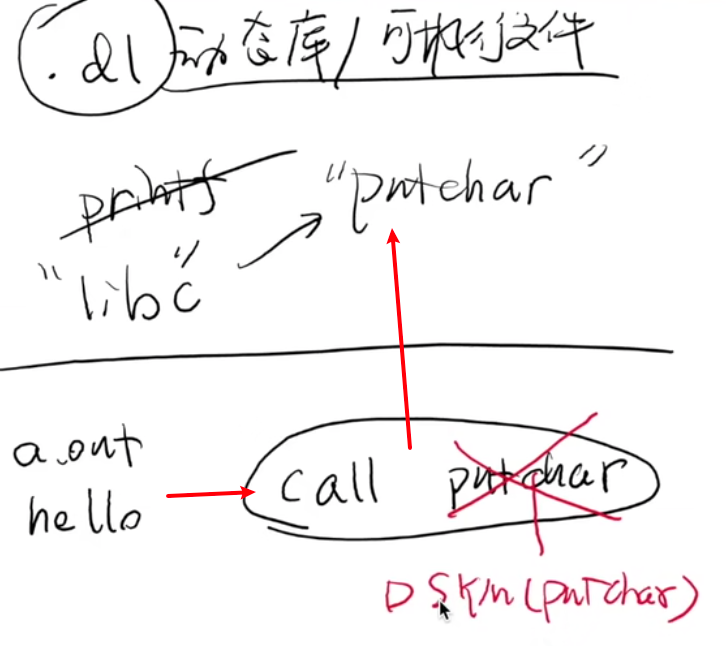 .dl 动态库/可执行文件
printf
"putchar"
"libc"
a.out
hello
call putchar
DSYM(putchar)